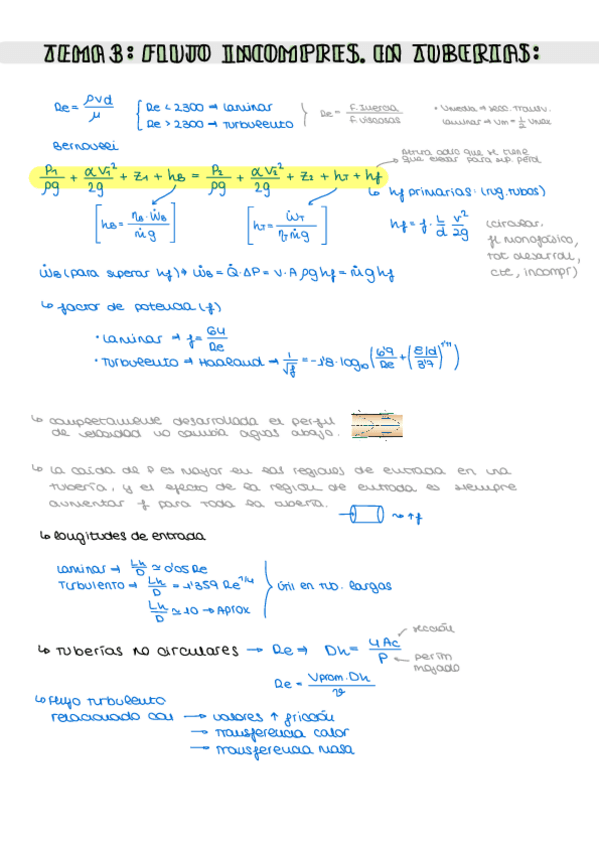 TEMA 3: FLUJO INCOMPRES. EN TUBERIAS:
Re = ρvd/μ [Re < 2300 → Laminar
Re > 2300 → Turbulento
Re = F. Inercia / F. viscosas
• Vmedia → secc. Transv.
Laminar → Vm = 1/2 Vmáx
Bernoulli
P1/ρg + αV1²/2g + z1 + hB = P2/ρg + αV2²/2g + z2 + hT + hf
que elevar para sup. perd
[hB = ηB·ẆB/ṁg] [hT = ẆT/ηT ṁg]
↳ hf primarias: (rug. tubos)
hf = f · L/d · v²/2g
(circular.
fl monofásico,
tot desarroll,
cte, incompr)
ẆB (para superar hf) → ẆB = Q̇·ΔP = V·A ρg hf = ṁg hf
↳ factor de potencia (f)
• Laminar → f = 64/Re
• Turbulento → Haaland → 1/√f = -1'8·log10 (6'9/Re + (E/d/3'7)^1'11)
↳ completamente desarrollada el perfil
de velocidad no cambia aguas abajo.
↳ La caída de P es mayor en las regiones de entrada en una
tubería, y el efecto de la región de entrada es siempre
aumentar f para toda la tubería.
→ ↑f
↳ longitudes de entrada
Laminar → Lh/D ≃ 0'05 Re
Turbulento → Lh/D = 1'359 Re^1/4
Lh/D ≃ 10 → Aprox
útil en tub. largas
↳ Tuberías no circulares → Re → Dh = 4Ac/P
sección
perim
mojado
Re = Vprom·Dh/ν
↳ Flujo turbulento
relacionado con → valores ↑ fricción
→ Transferencia calor
→ Transferencia masa